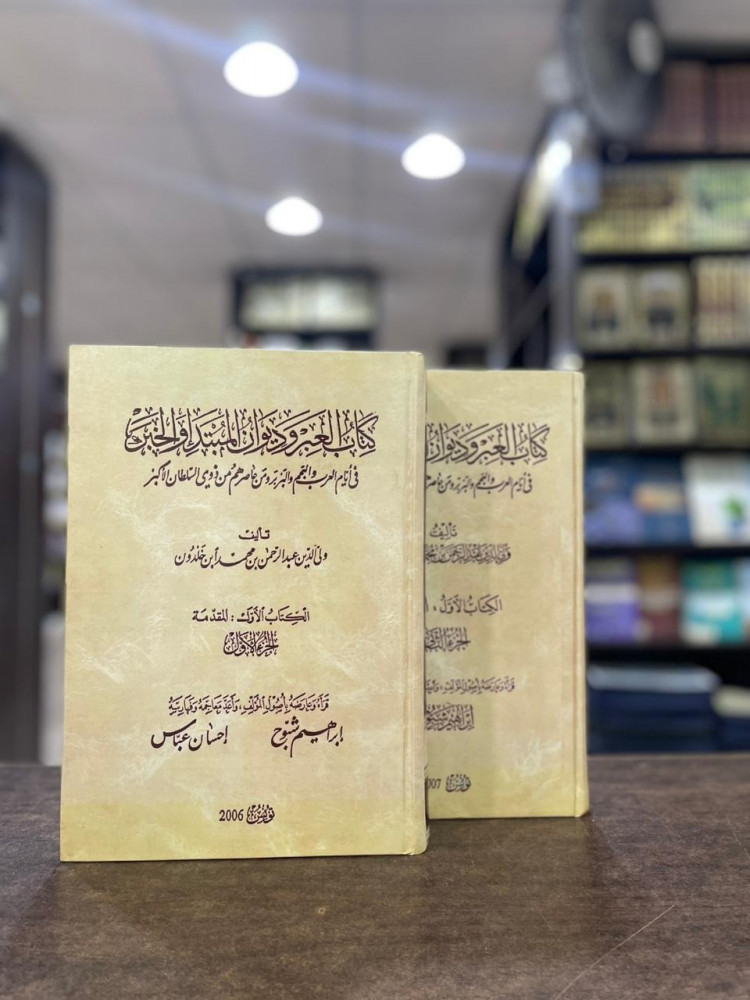 كتاب العبر وديوان المبتدإ والخبر
في أيام العرب والعجم والبربر ومن عاصرهم من ذوي السلطان الأكبر
تأليف
ولي الدين عبد الرحمن بن محمد ابن خلدون
الكتاب الأول : المقدمة
الجزء الأول
قرأه وعارضه بأصول المؤلف، وأعد معاجمه وفهارسه
إبراهيم شبوح
إحسان عباس
تونس 2006
كتاب العبر وديوان
في أيام العرب والعجم والبربر ومن عاصرهم
تأليف
الكتاب الأول :
الجزء الثاني
قرأه وعارضه بأصول المؤلف،
إبراهيم شبوح
تونس 007